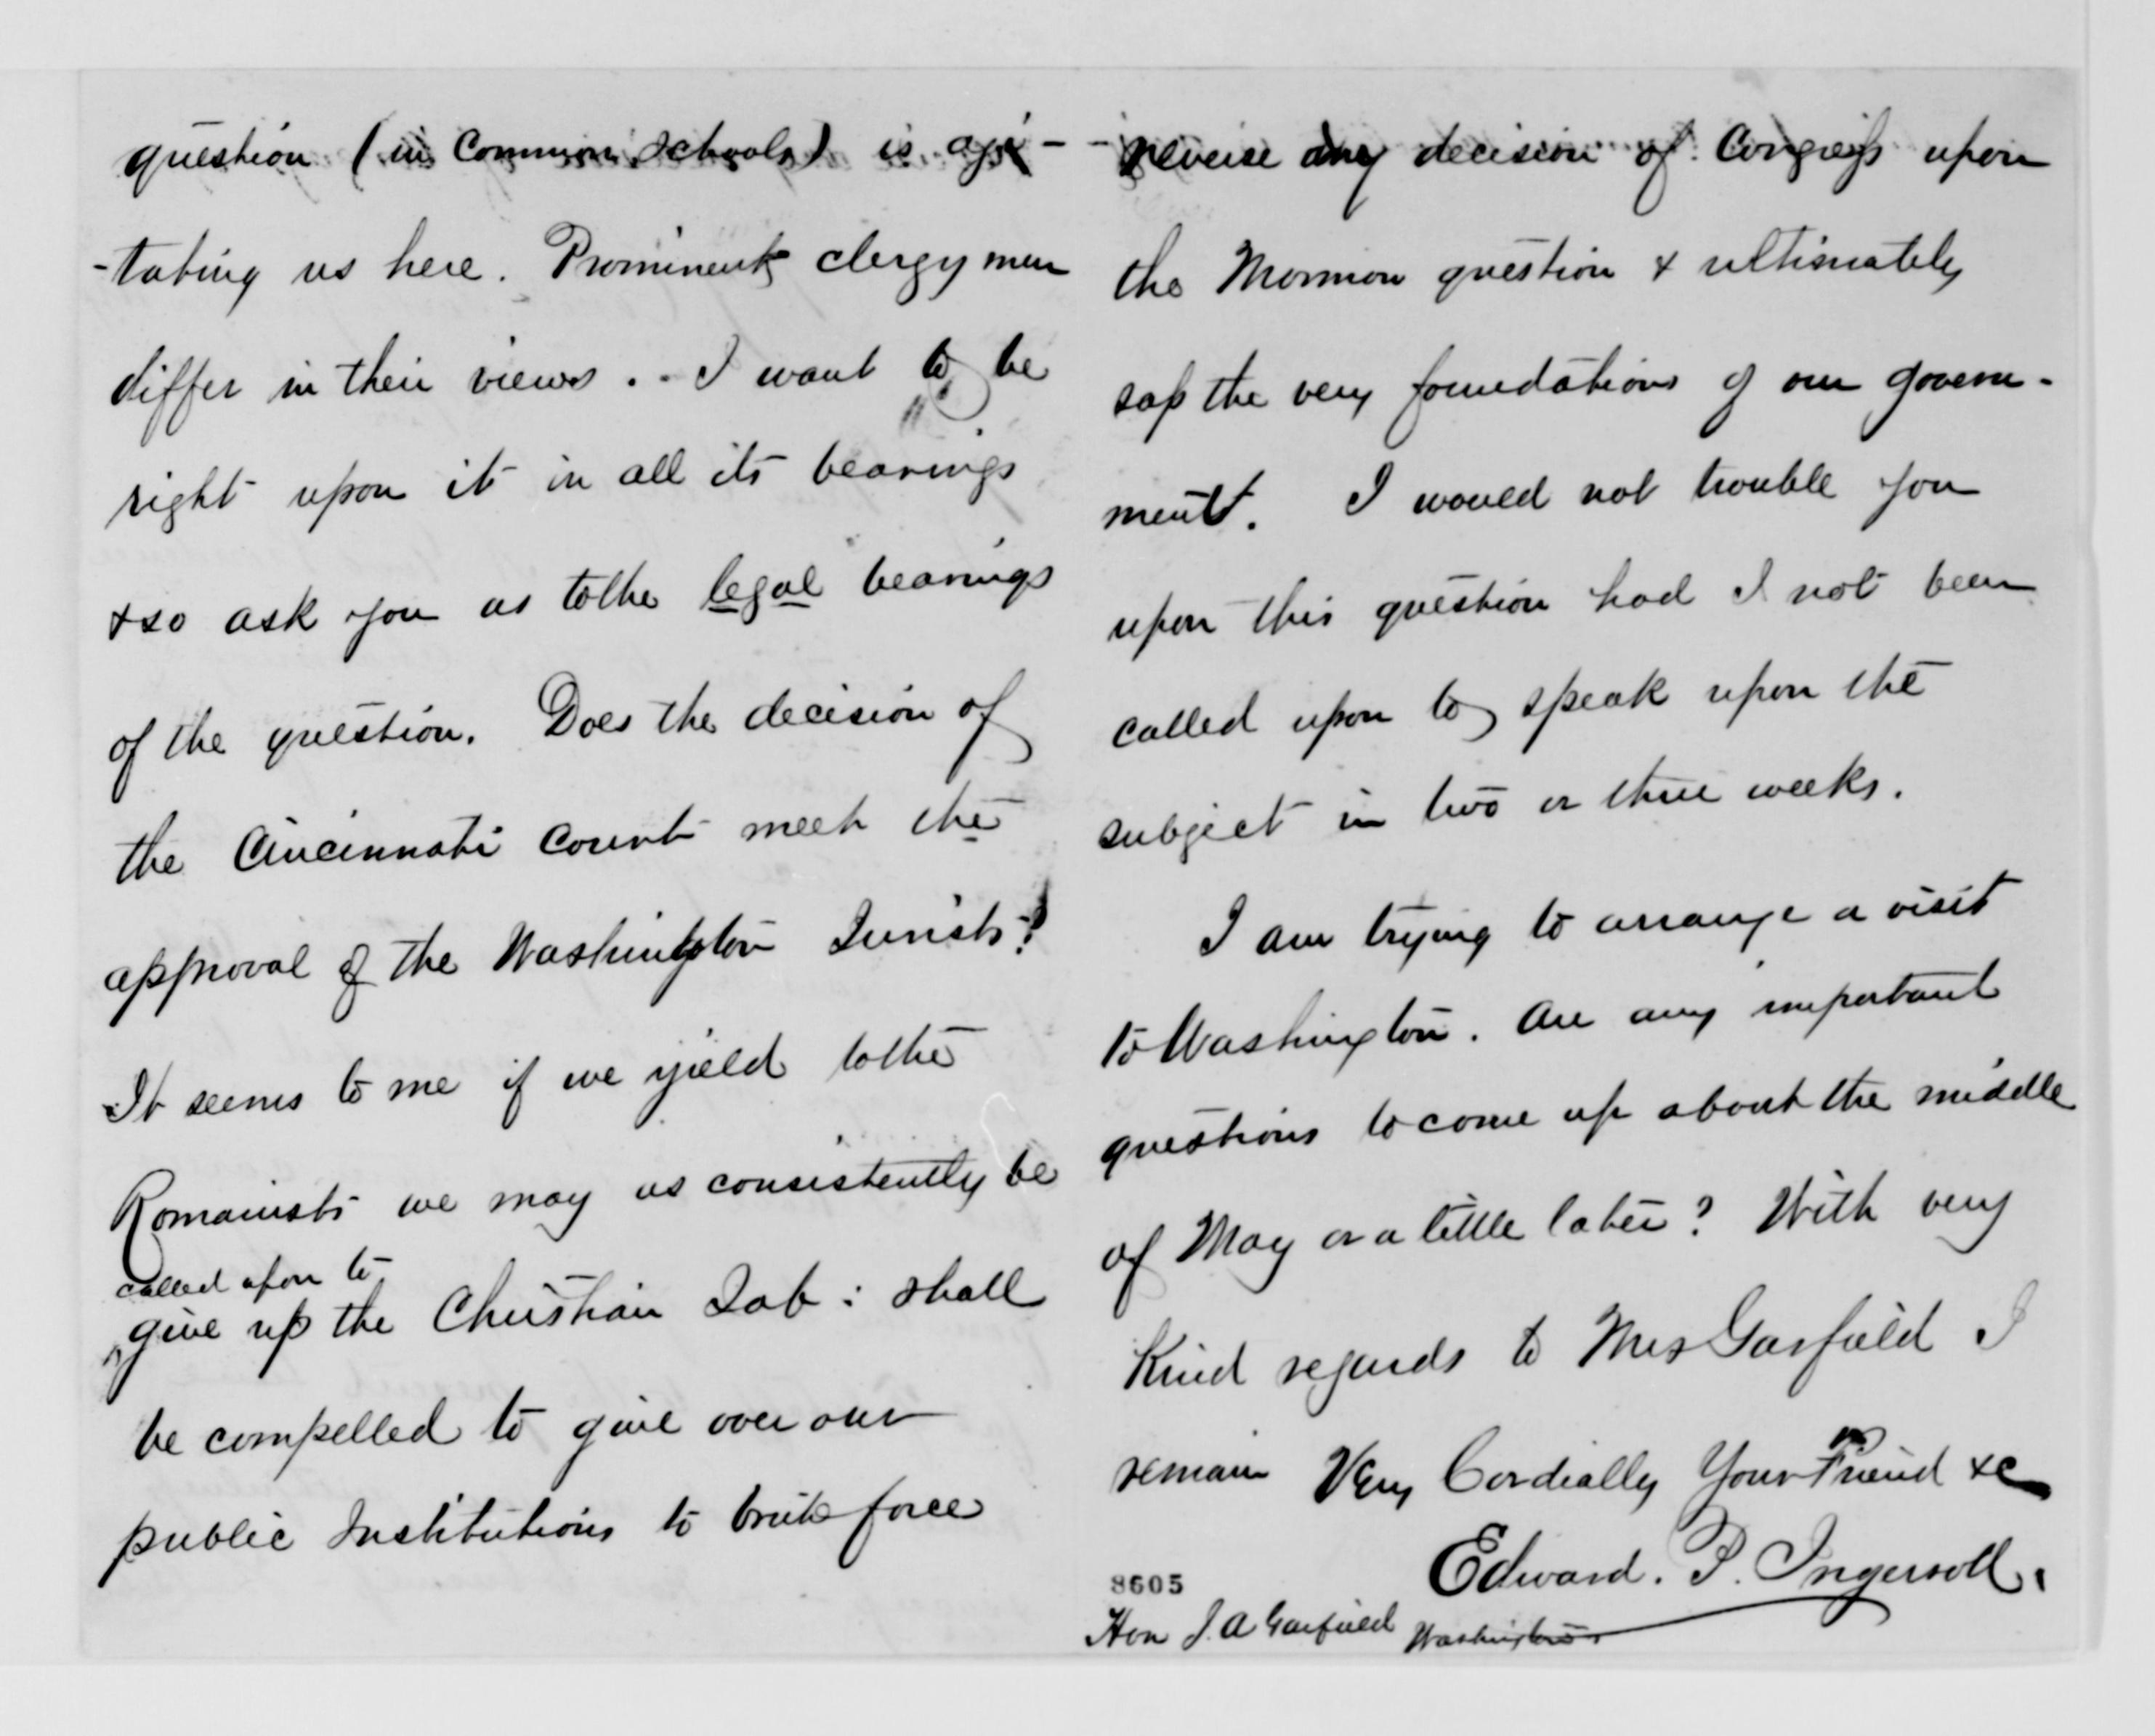 question (in Common Schools) is agi-
-tating us here. Prominent clergymen
differ in their views. - I want to be
right upon it in all its bearings
& so ask you as to the legal bearings
of the question. Does the decision of
the Cincinnati Court meet the
approval of the Washington Jurists?
It seems to me if we yield to the
Romanists we may as consistently be
called upon to
give up the Christian Sab: shall
be compelled to give over our
public Institutions to brute force
- reverse any decision of Congress upon
the Mormon question & ultimately
sap the very foundations of our govern-
ment. I would not trouble you
upon this question had I not been
called upon to speak upon the
subject in two or three weeks.
I am trying to arrange a visit
to Washington. Are any important
questions to come up about the middle
of May or a little later? With very
Kind regards to Mrs Garfield I
remain Very Cordially Your Friend &c
Edward. P. Ingersoll.
8605
Hon J. A Garfield Washington